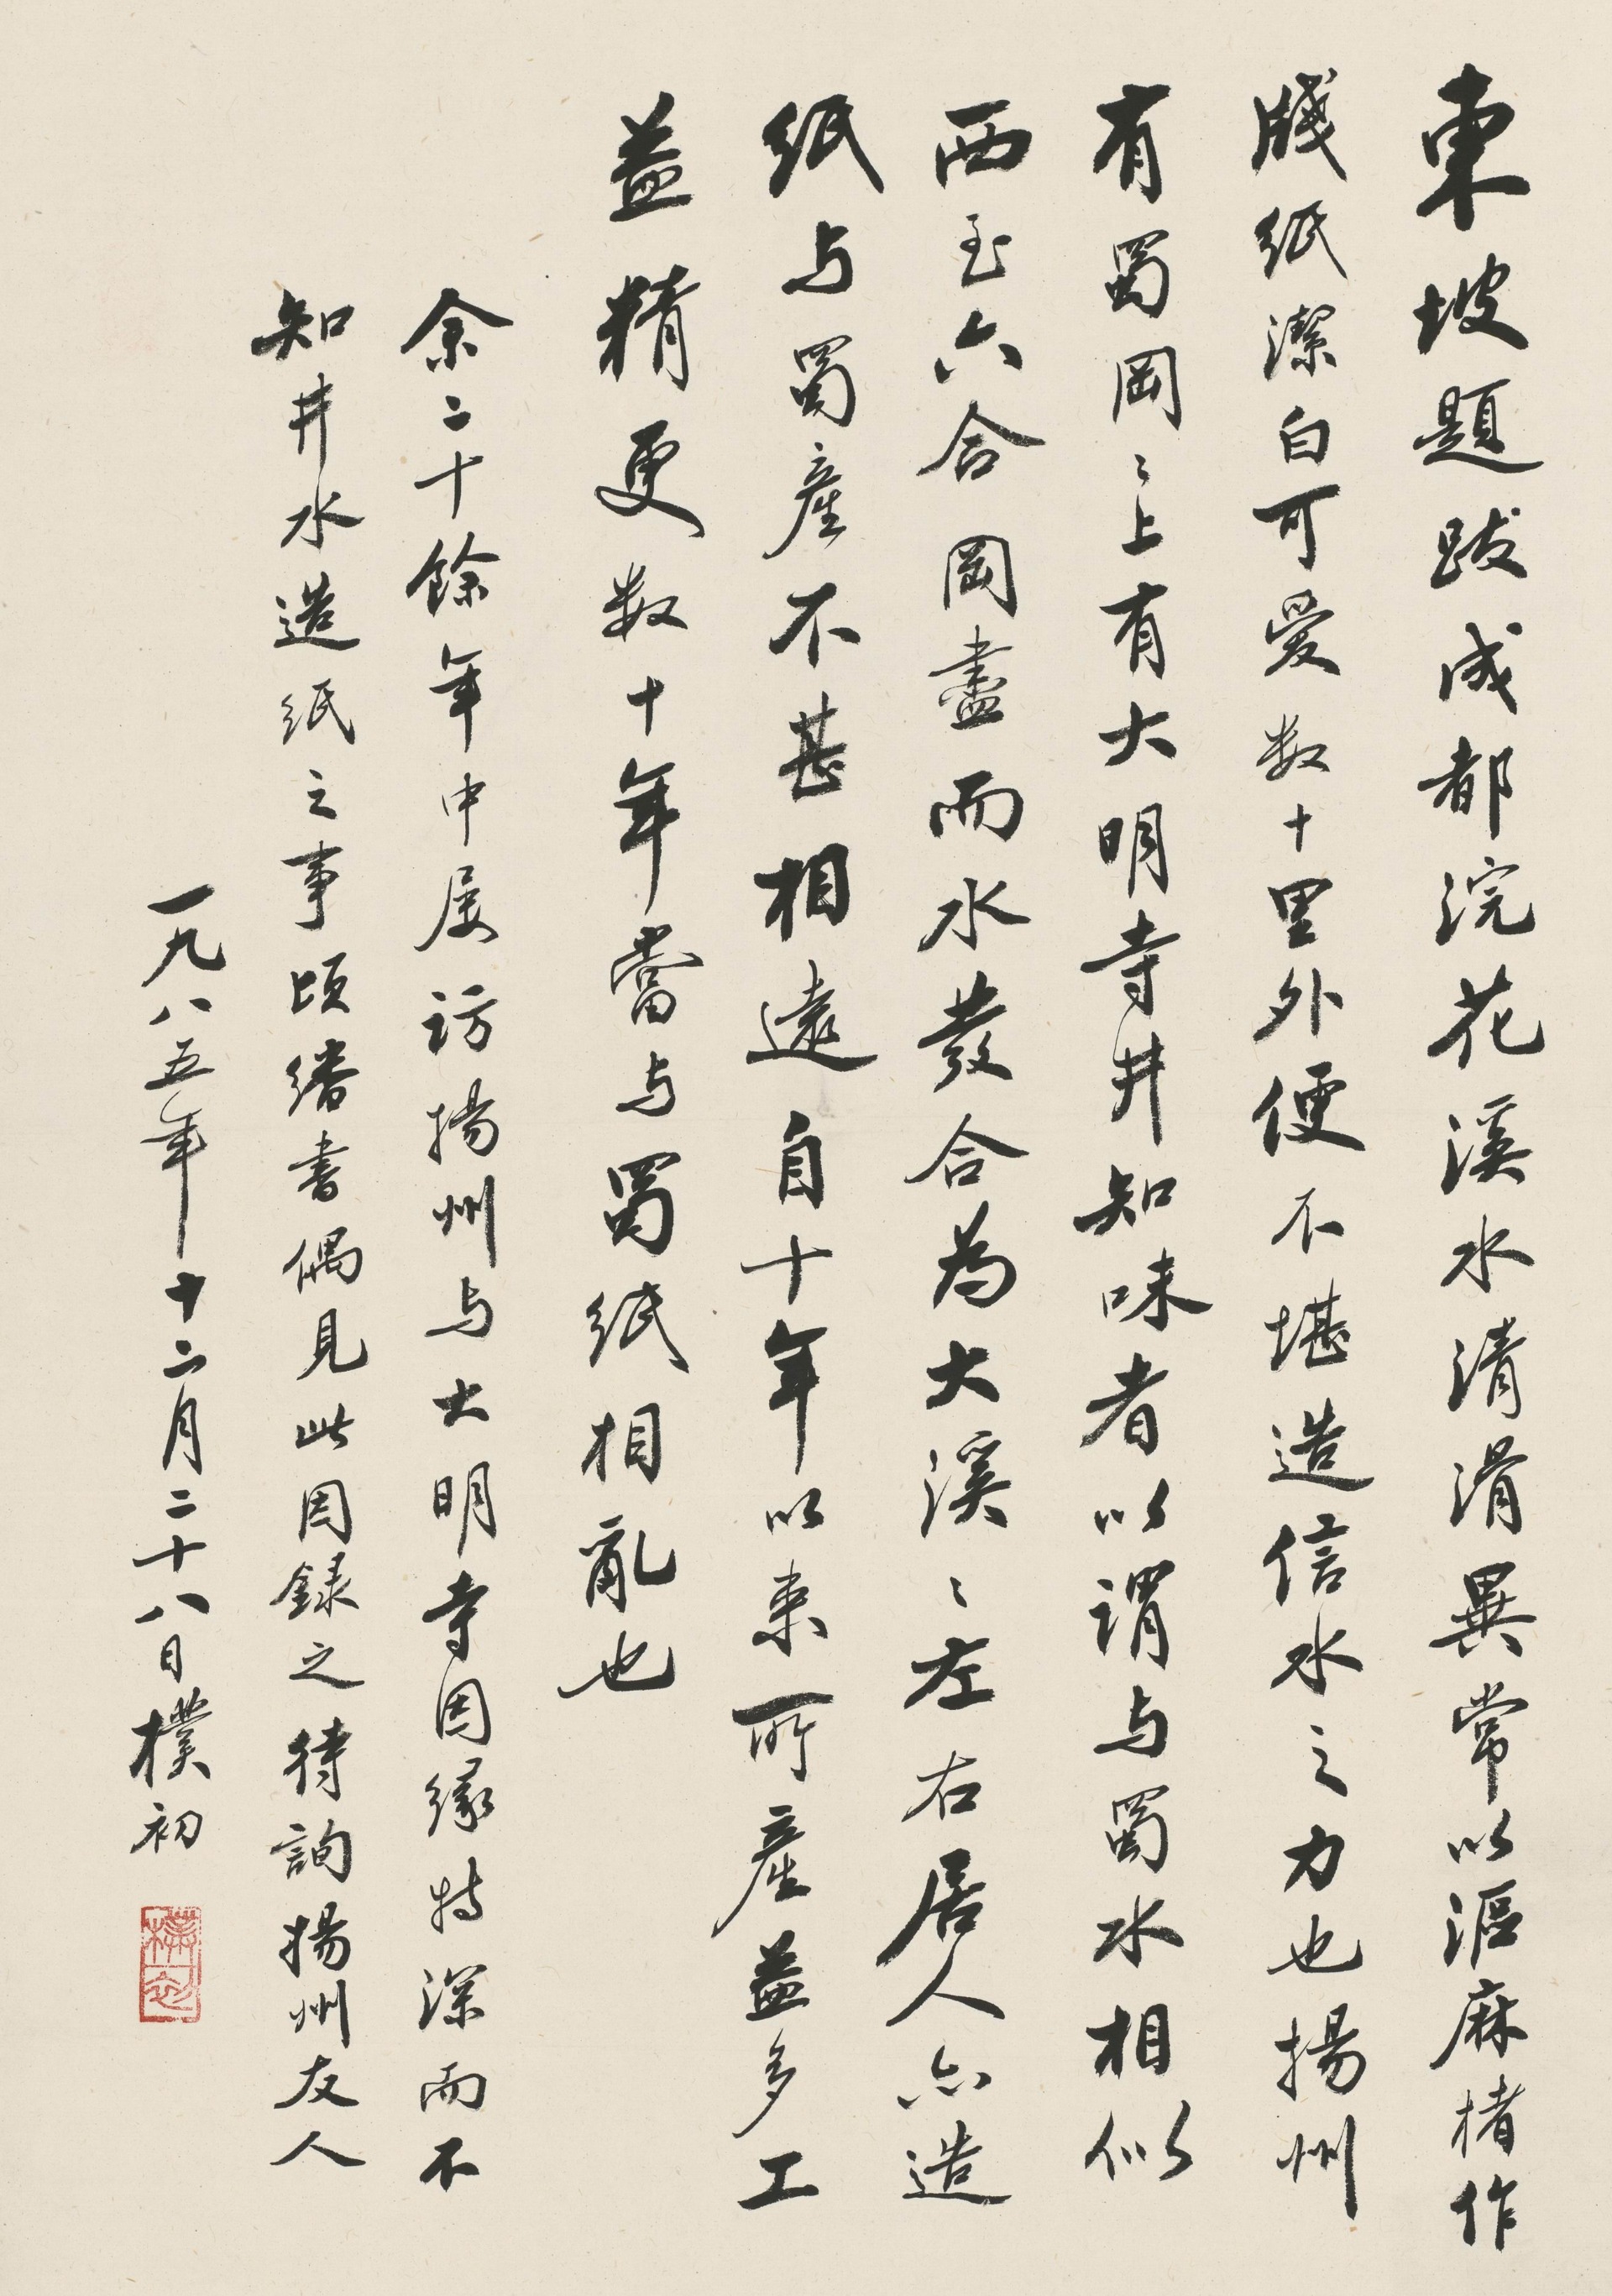 東坡題跋成都浣花溪水清滑異常以漚麻楮作
牋紙潔白可愛数十里外便不堪造信水之力也揚州
有蜀岡〻上有大明寺井知味者以謂与蜀水相似
西至六合岡盡而水發合為大溪〻左右居人亦造
紙与蜀産不甚相遠自十年以来所産益多工
益精更数十年當与蜀紙相亂也
余二十餘年中屡訪揚州与大明寺因緣特深而不
知井水造紙之事頃繙書偶見此因録之待詢揚州友人
一九八五年十二月二十八日樸初
樸初